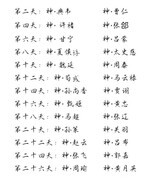 第二天：神·典韦 神·曹仁
第四天：神·许褚 神·张郃
第六天：神·甘宁 神·吕蒙
第八天：神·夏侯惇 神·太史慈
第十天：神·魏延 神·周泰
第十二天：神·荀彧 神·马云禄
第十四天：神·孙尚香 神·曹洪
第十六天：神·甄姬 神·黄忠
第十八天：神·马超 神·张辽
第二十天：神·孙策 神·关羽
第二十二天：神·赵云 神·吕布
第二十四天：神·张飞 神·郭嘉
第二十六天：神·周瑜 神·黄月英